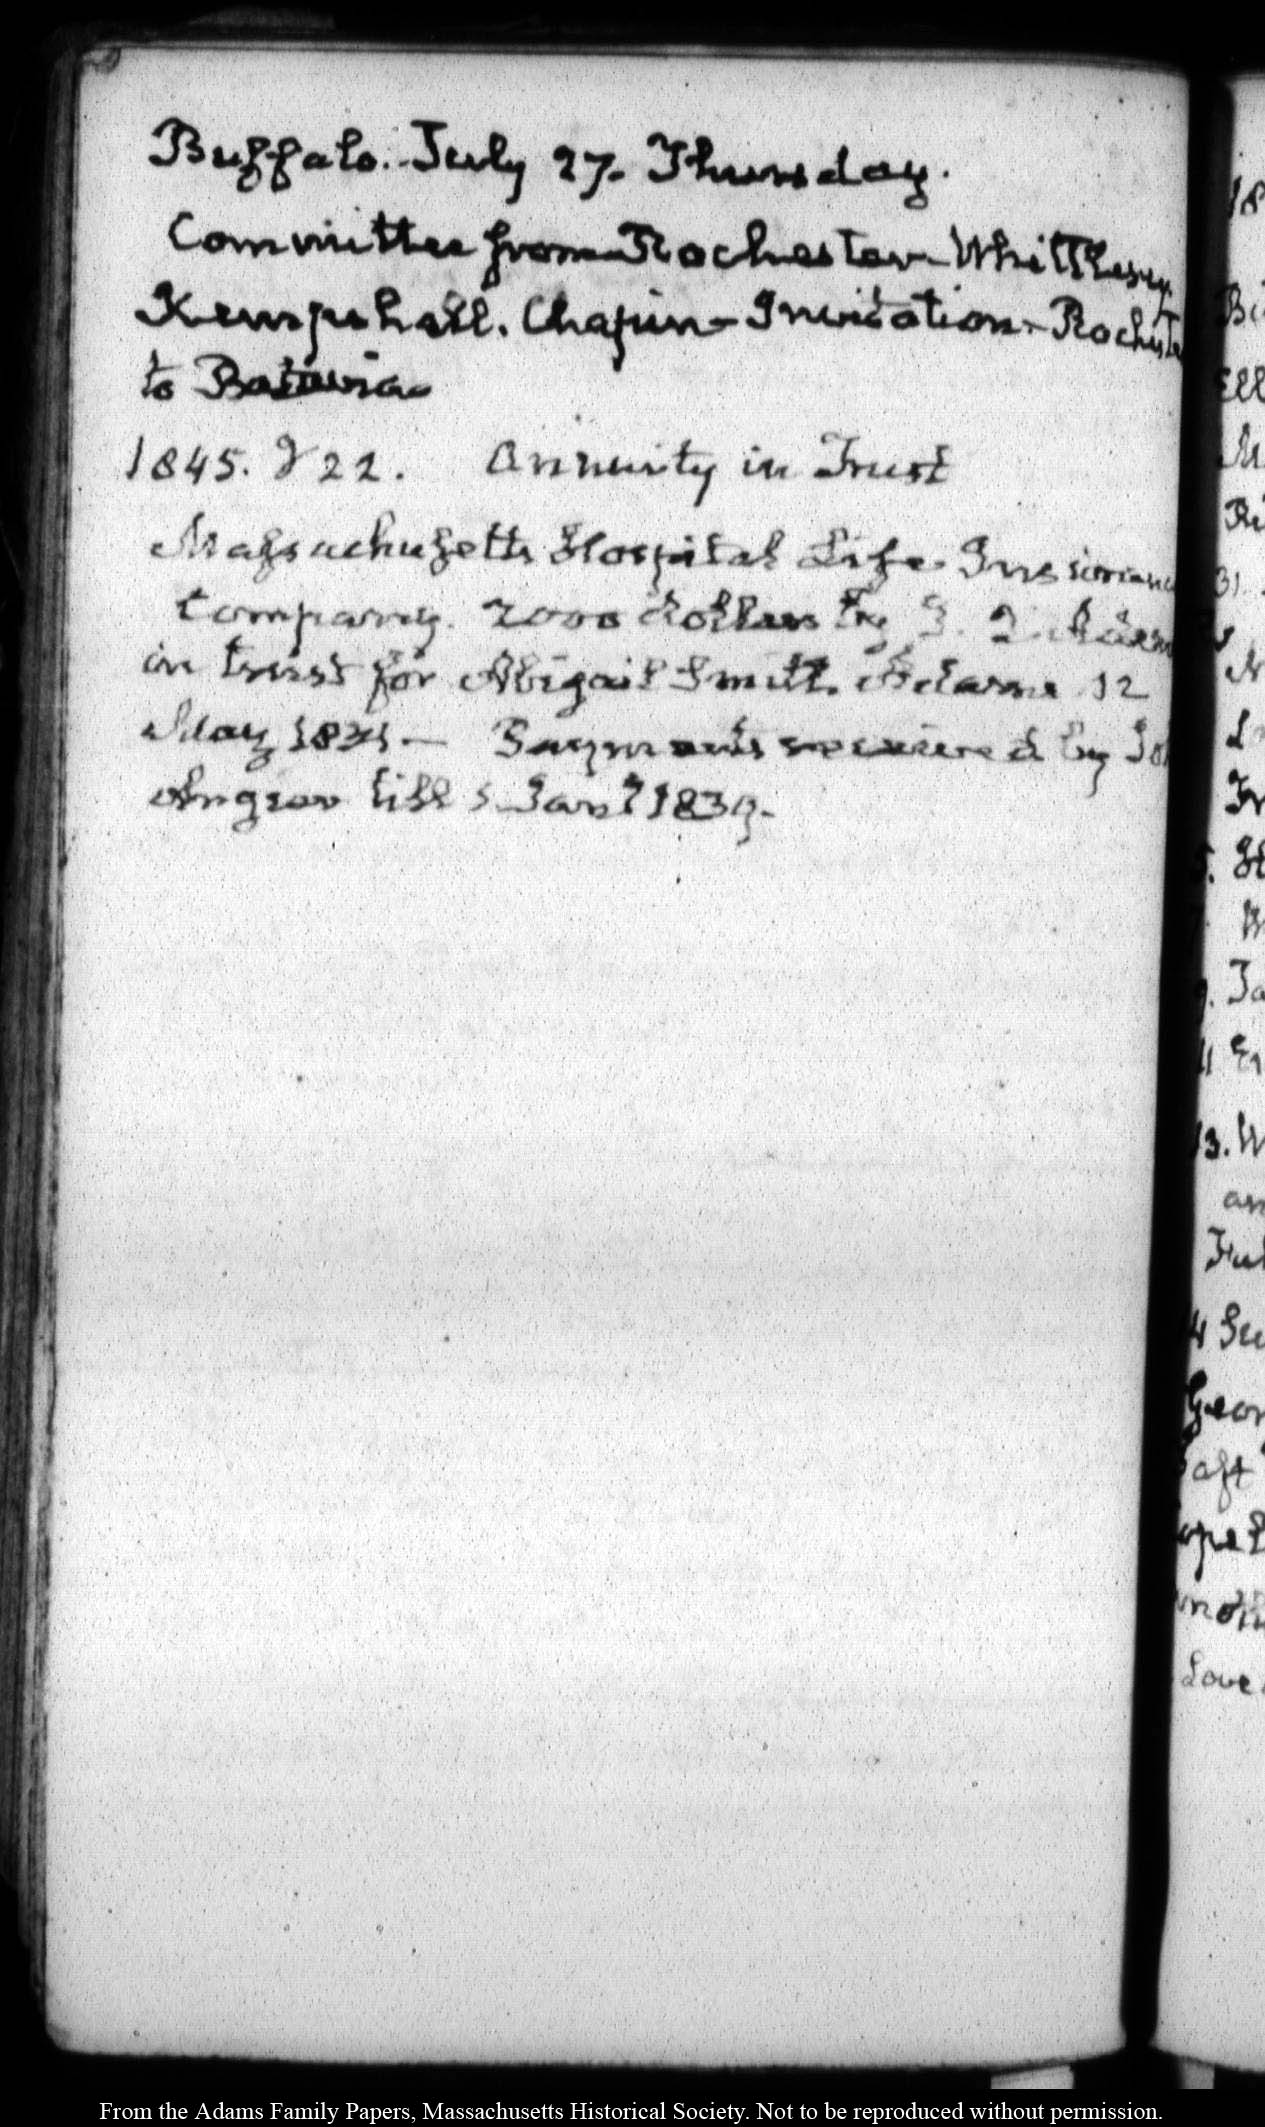 Buffalo. July 27. Thursday.
Committee from Rochester Whittlesey
Kempshall. Chapin - Invitation - Rochester
to Batavia
1845. 22. Annuity in Trust
Massachusetts Hospital Life Insurance
Company. 2000 dollars by J. Q. Adams
in trust for Abigail Smith Adams 12
May 1831 — Payments received by Jos
Angier till Jany 1839.
From the Adams Family Papers, Massachusetts Historical Society. Not to be reproduced without permission.